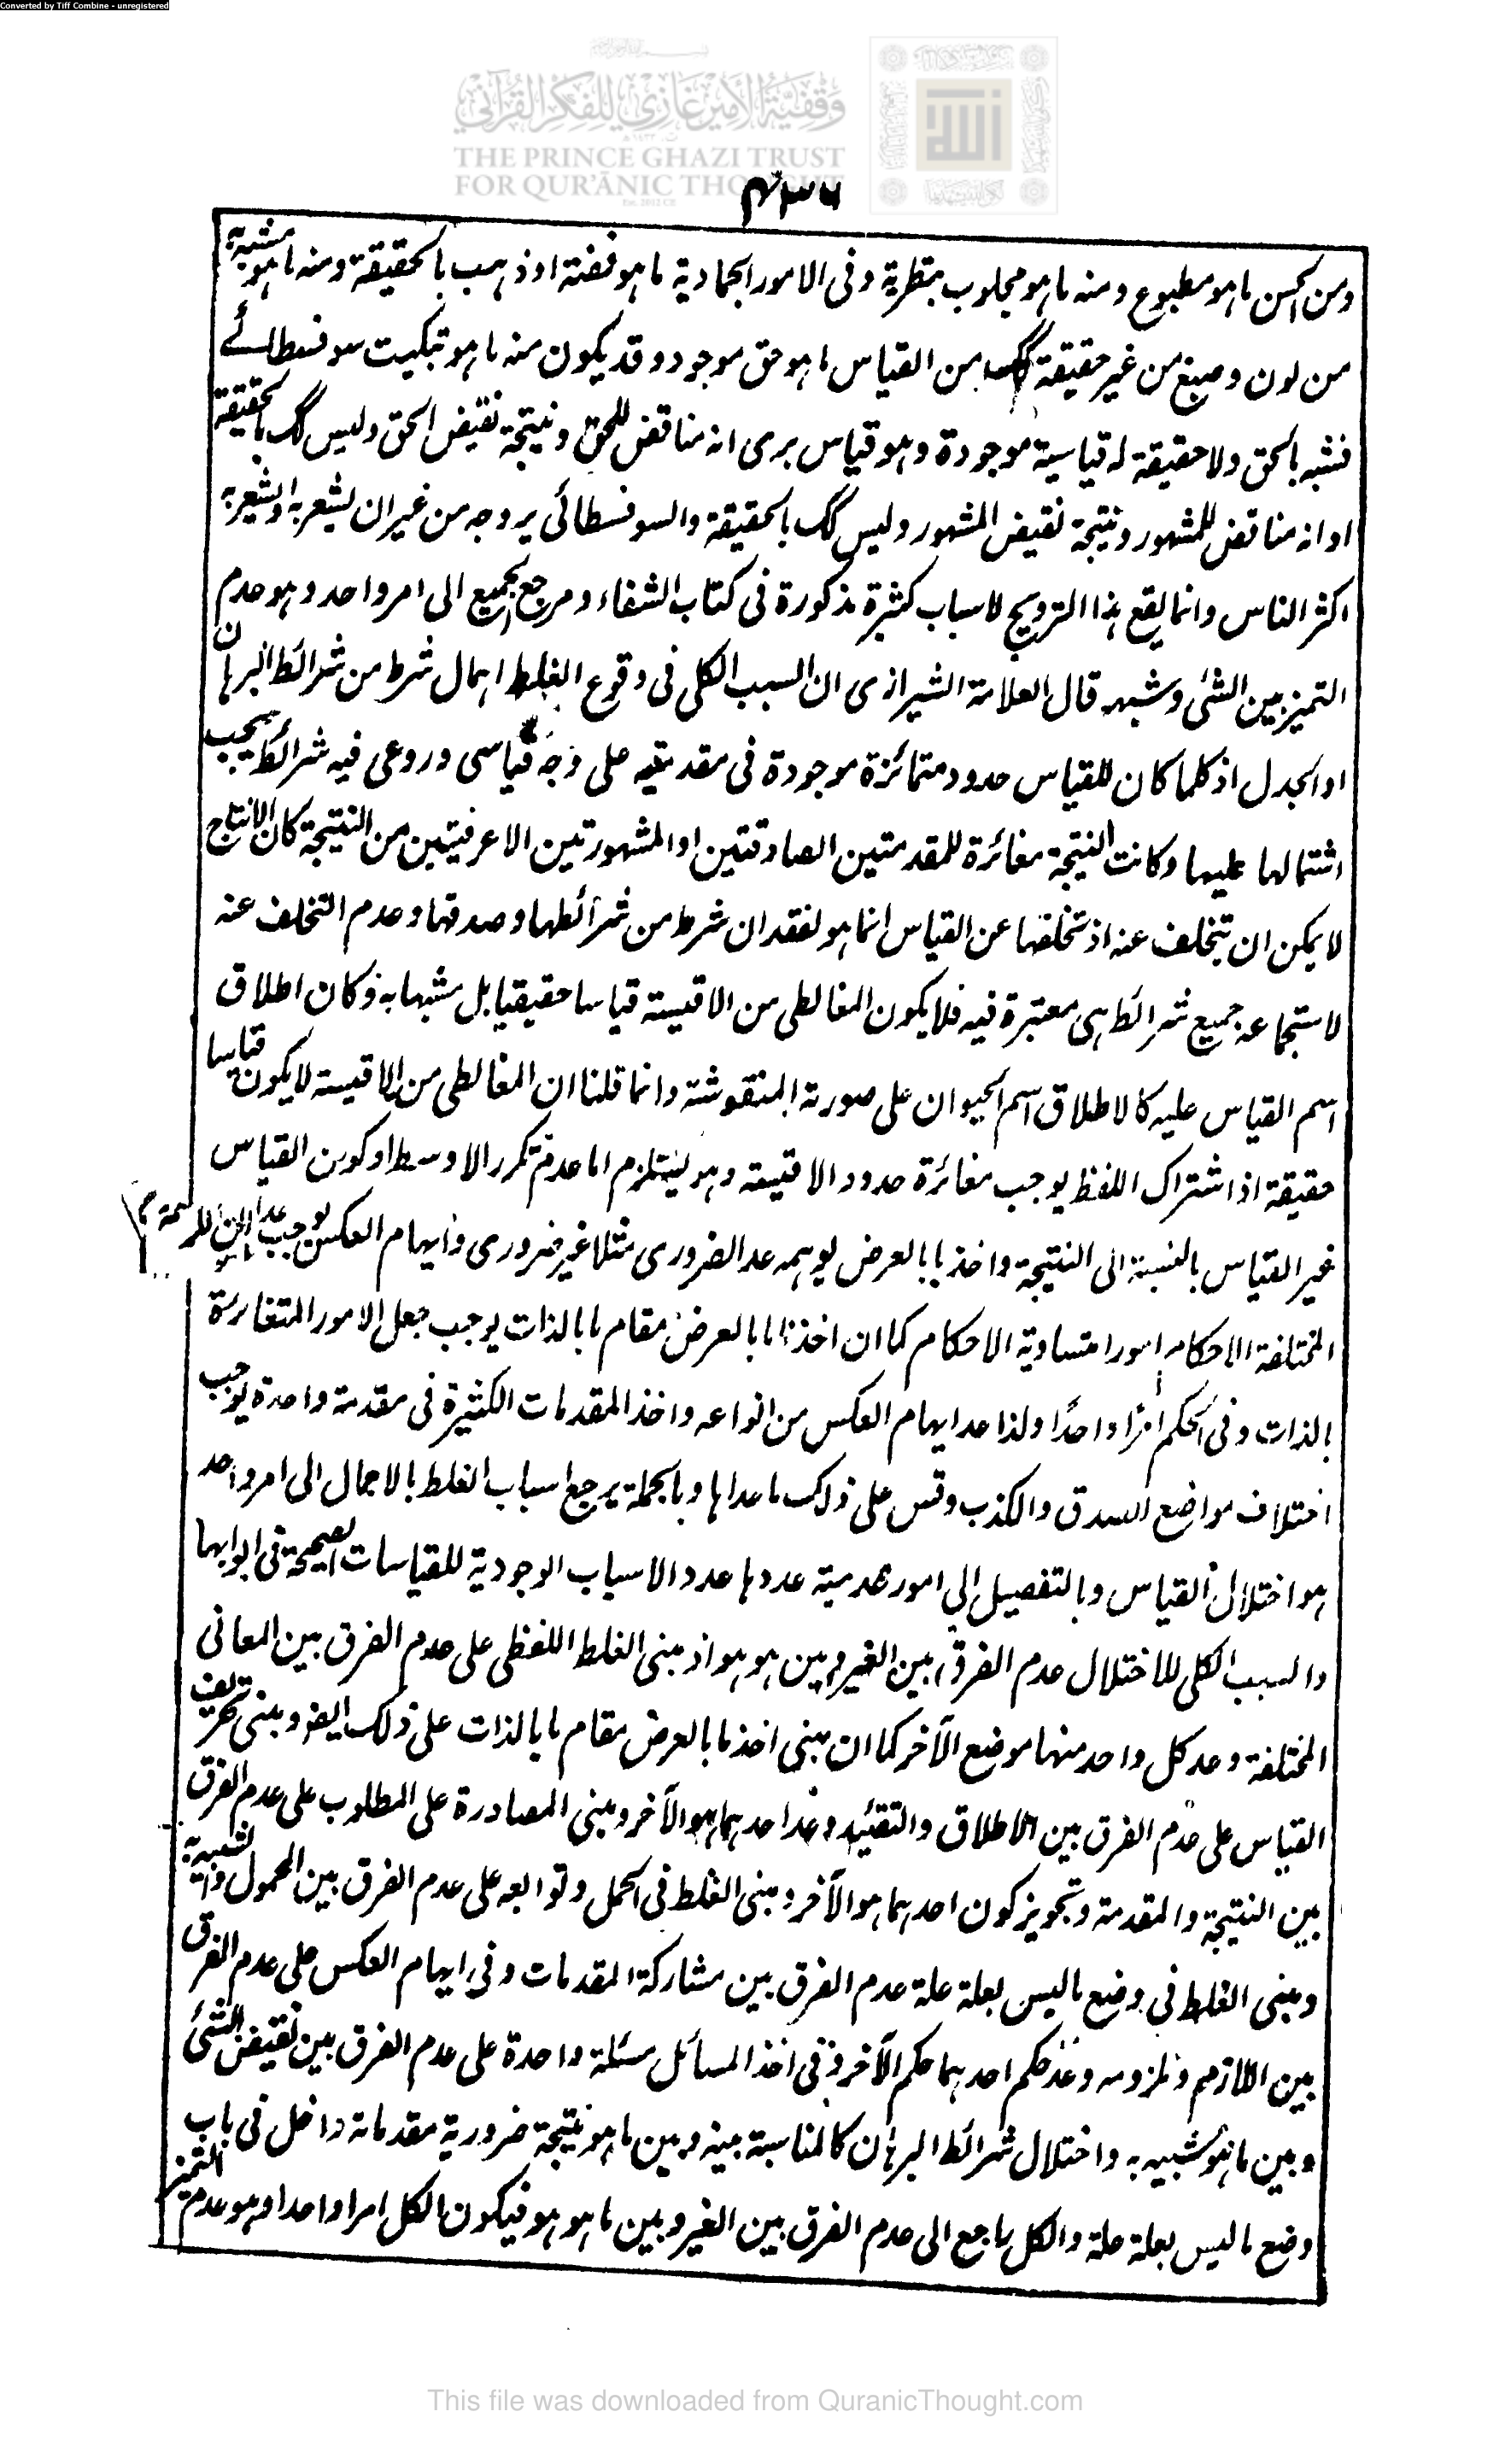 Converted by Tiff Combine - unregistered
وقفية الأمير غازي للفكر القرآني
THE PRINCE GHAZI TRUST
FOR QUR'ĀNIC THOUGHT
Est. 2012 CE
۴۳۶
ومن الحسن ما هو مطبوع ومنه ما هو مجلوب بتطرية وفى الامور الجمادية ما هو فضة او ذهب بالحقيقة ومنه ما هو مشبه به
من لون وصبغ من غير حقيقة كك من القياس ما هو حق موجود وقد يكون منه ما هو تبكيت سوفسطائے
فشبه بالحق ولا حقيقة له قياسية موجودة وهو قياس يرى انه مناقض للحق ونتيجة نقيض الحق وليس كك بالحقيقة
او انه مناقض للمشهور ونتيجة نقيض المشهور وليس كك بالحقيقة والسوفسطائى يروجه من غير ان يشعر به او يشعر به
اكثر الناس وانما يقع هذا الترويج لاسباب كثيرة مذكورة فى كتاب الشفاء ومرجع الجميع الى امر واحد وهو عدم
التميز بين الشئ وشبهه قال العلامة الشيرازى ان السبب الكلى فى وقوع الغلط اهمال شرط من شرائط البرهان
او الجدل اذ كلما كان للقياس حدود متمائزة موجودة فى مقدمتيه على وجه قياسى وروعى فيه شرائط يجب
اشتمالها عليها وكانت النتيجة مغائرة للمقدمتين الصادقتين او المشهورتين الاعرفيتين من النتيجة كان الانتاج
لا يمكن ان يتخلف عنه اذ تخلفها عن القياس انما هو لفقدان شرط من شرائطها وصدقها وعدم التخلف عنه
لاستجماعه جميع شرائط هى معتبرة فيه فلا يكون المغالطى من الاقيسة قياسا حقيقيا بل مشبها به وكان اطلاق
اسم القياس عليه كالاطلاق اسم الحيوان على صورته المنقوشة وانما قلنا ان المغالطى من الاقيسة لا يكون قياسا
حقيقة اذ اشتراك اللفظ يوجب مغائرة حدود الاقيسة وهو يستلزم اما عدم تكرر الاوسط او كون القياس
غير القياس بالنسبة الى النتيجة واخذ ما بالعرض يوهمه عد الضرورى مثلا غير ضرورى وايهام العكس يوجب عد
المختلفة الاحكام امورا متساوية الاحكام كما ان اخذ ما بالعرض مقام ما بالذات يوجب جعل الامور المتغائرة
بالذات وفى الحكم امرا واحدًا ولذا عد ايهام العكس من انواعه واخذ المقدمات الكثيرة فى مقدمة واحدة يوجب
اختلاف مواضع الصدق والكذب وقس على ذلك ما عداها وبالجملة يرجع اسباب الغلط بالاجمال الى امر واحد
هو اختلال القياس وبالتفصيل الى امور عدمية عددها عدد الاسباب الوجودية للقياسات الصحيحة فى ابوابها
والسبب الكلى للاختلال عدم الفرق بين الغير وبين هو هو اذ مبنى الغلط اللفظى على عدم الفرق بين المعانى
المختلفة وعد كل واحد منها موضع الآخر كما ان مبنى اخذ ما بالعرض مقام ما بالذات على ذلك ايضا ومبنى تحريف
القياس على عدم الفرق بين الاطلاق والتقئيد وعد احدهما هو الآخر ومبنى المصادرة على المطلوب على عدم الفرق
بين النتيجة والمقدمة وتجويز كون احدهما هو الآخر ومبنى الغلط فى الحمل وتوابعه على عدم الفرق بين المحمول والشبيه به
ومبنى الغلط فى وضع ما ليس بعلة علة عدم الفرق بين مشاركة المقدمات وفى ايهام العكس على عدم الفرق
بين اللازم وملزومه وعد حكم احدهما حكم الآخر وفى اخذ المسائل مسئلة واحدة على عدم الفرق بين نقيض الشئ
وبين ما هو شبيه به واختلال شرائط البرهان كالمناسبة بينه وبين ما هو نتيجة ضرورية مقدماته داخل فى باب
وضع ما ليس بعلة علة والكل راجع الى عدم الفرق بين الغير وبين ما هو هو فيكون الكل امرا واحدا وهو عدم التميز
This file was downloaded from QuranicThought.com